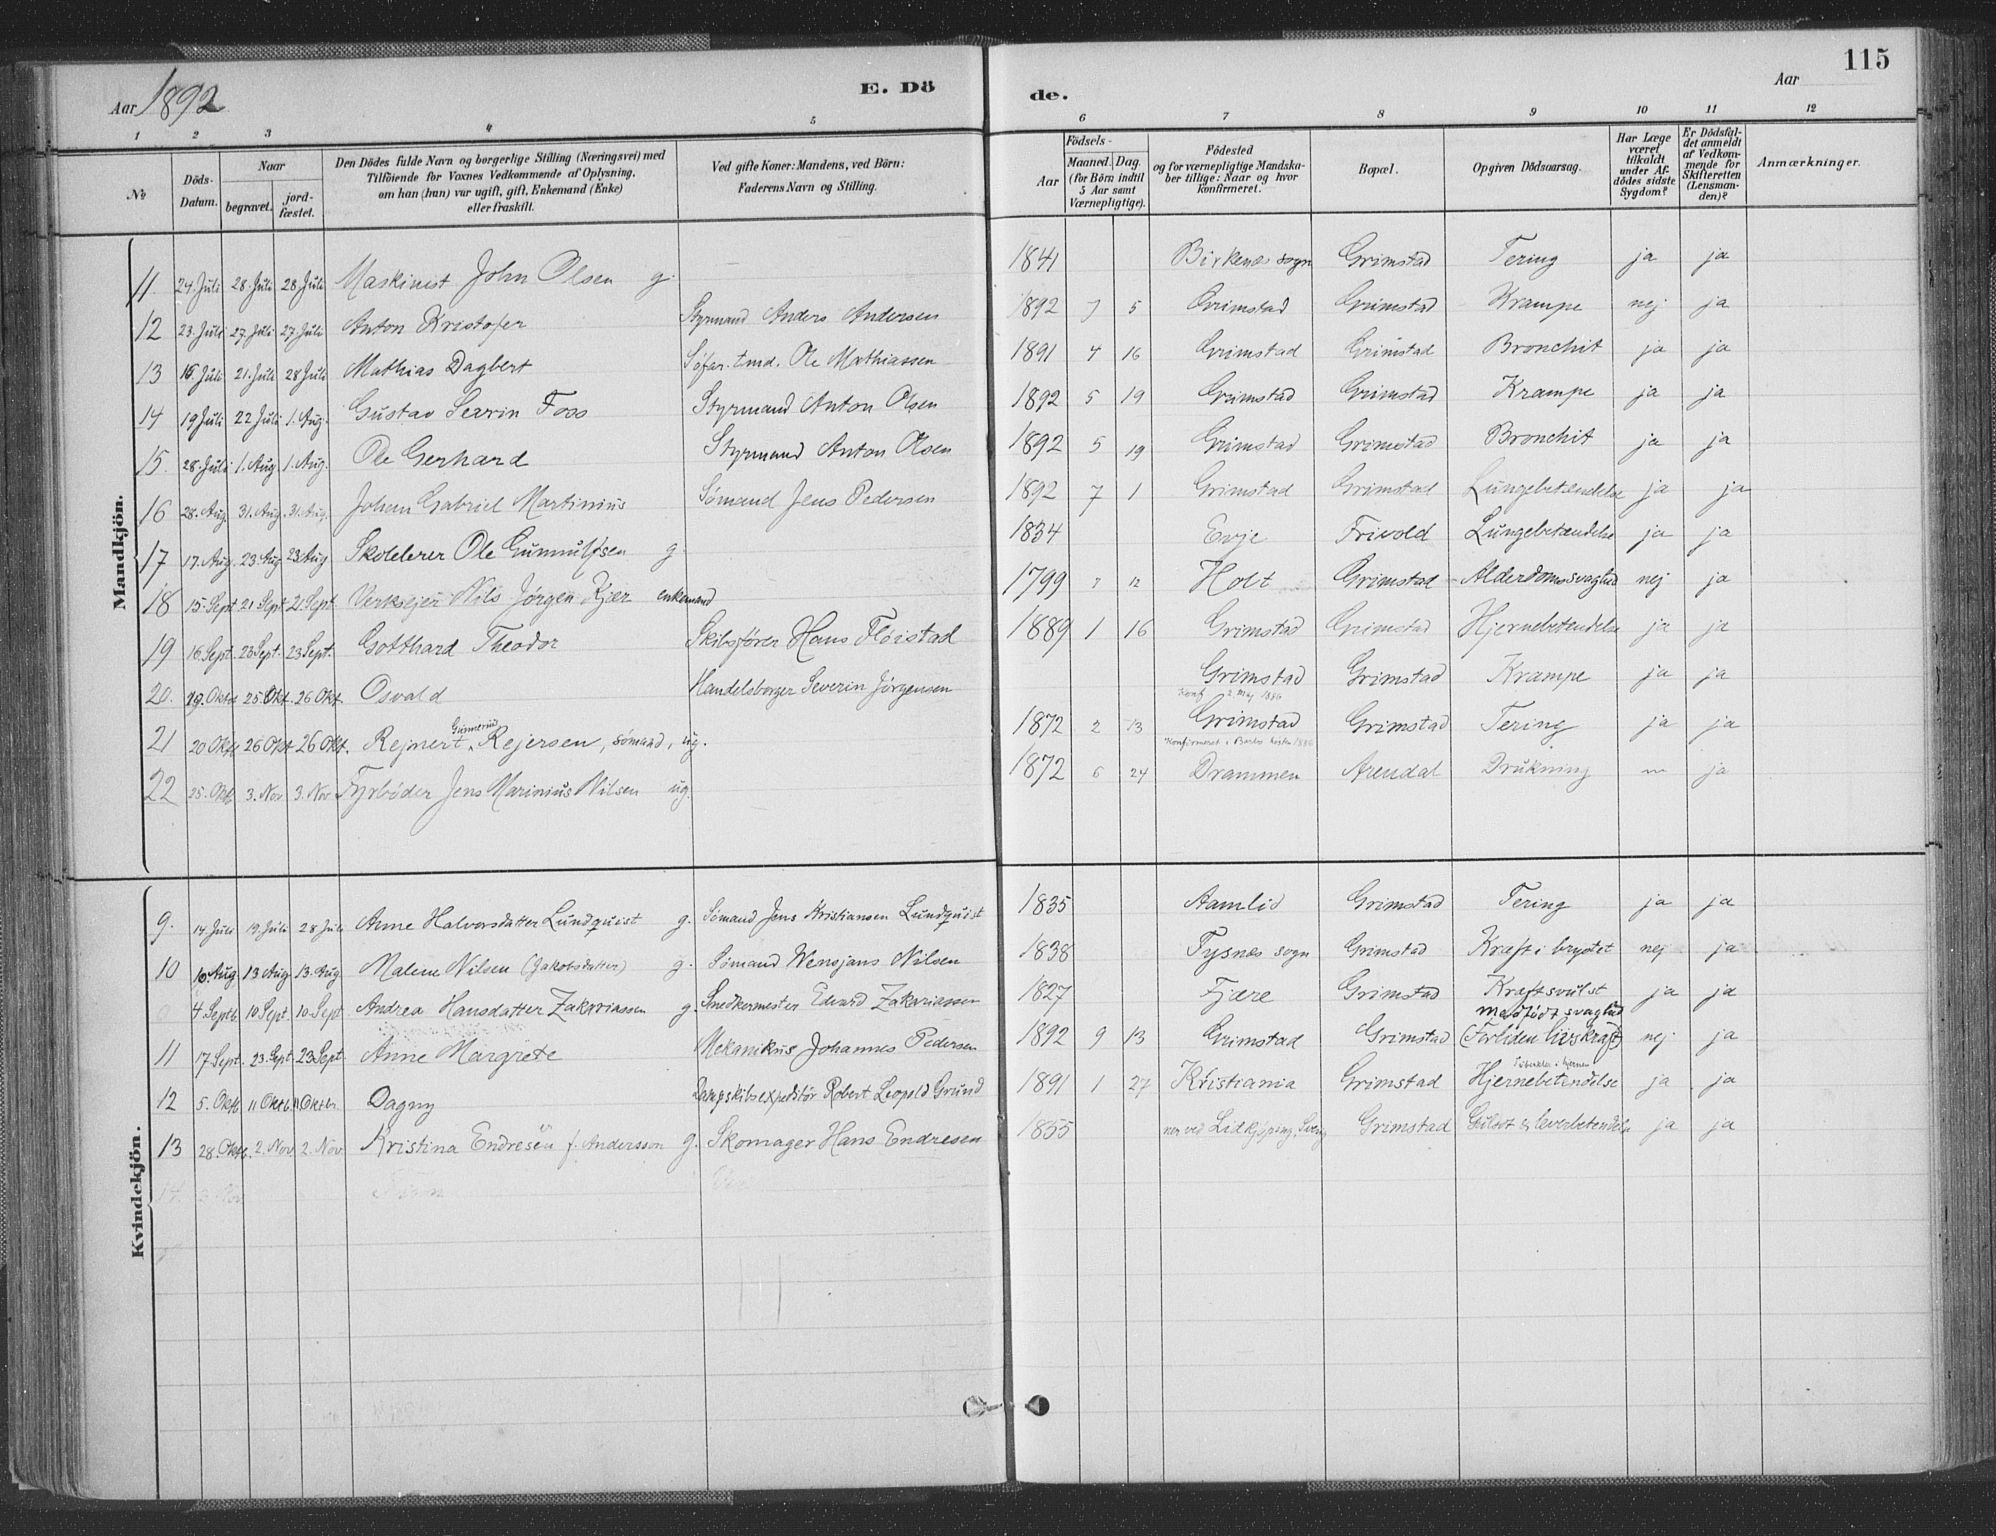 115
Aar 1892 E. Dö de. Aar
1 2 3 4 5 6 7 8 9 10 11 12
No
Döds-Datum.
Naar begravet. jord-fæstet.
Den Dödes fulde Navn og borgerlige Stilling (Næringsvei) med Tilföiende for Voxnes Vedkommende af Oplysning, om han (hun) var ugift, gift, Enkemand (Enke) eller fraskilt.
Ved gifte Koner: Mandens, ved Börn: Faderens Navn og Stilling.
Födsels- Aar Maaned. Dag. (for Börn indtil 5 Aar samt Værnepligtige).
Födested og for værnepligtige Mandskaber tillige: Naar og hvor konfirmeret.
Bopæl.
Opgiven Dödsaarsag.
Har Læge været tilkaldt under Afdödes sidste Sygdom?
Er Dödsfaldet anmeldt af Vedkommende for Skifteretten (Lensmanden)?
Anmærkninger.
Mandkjön.
11 24. Juli 28. Juli 28 Juli Maskinist John Olsen g. 1841 Birkenes sogn Grimstad Tering ja ja
12 23. Juli 27. Juli 27. Juli Anton Kristofer Styrmand Anders Andersen 1892 7 5 Grimstad Grimstad Krampe nej ja
13 16. Juli 21. Juli 28 Juli Mathias Dagbert Söfar. tmd. Ole Mathiassen 1891 4 16 Grimstad Grimstad Bronchit ja ja
14 19 Juli 22 Juli 1. Aug. Gustav Serrin Foss Styrmand Anton Olsen 1892 5 19 Grimstad Grimstad Krampe ja ja
15. 28. Juli 1. Aug 1. Aug. Ole Gerhard Styrmand Anton Olsen 1892 5 19 Grimstad Grimstad Bronchit ja ja
16 28. Aug. 31. Aug. 31. Aug. Johan Gabriel Martinius Sømand Jens Pedersen 1892 7 1 Grimstad Grimstad Lungebetændelse ja ja
17 17. Aug. 23. Aug 23 Aug Skolelærer Ole Gunnulfsen g. 1834 Evje Frivold Lungebetændelse ja ja
18 15. Sept 21 Sept 21. Sept. Verksejer Nils Jørgen Kjær enkemand 1799 12 Holt Grimstad Alderdomssvaghed nej ja
19 16. Sept. 23 Sept. 23 Sept. Gotthard Theodor Skibsfører Hans Fløistad 1889 1 16 Grimstad Grimstad Hjernebetendelse ja ja
20. 19. Oktbr 25 Okt. 26 Okt. Osvald Handelsborger Severin Jørgensen Grimstad Grimstad Krampe ja ja
Konf 2 Maj 1886
21 20 Okt 26 Okt 26 Okt. Rejnert Gunnerius Rejersen, sømand, ug. 1872 2 13 Grimstad Grimstad Tering ja ja
Konfirmeret i Barbo høsten 1886
22 25. Okt 3. Nov 3. Nov Fyrbøder Jens Marinius Nilsen ug. 1872 6 24 Drammen Arendal Drukning — ja
Kvindekjön.
9. 14. Juli 19. Juli 28 Juli Anne Halvorsdatter Lundquist g. Sømand Jens Kristiansen Lundquist 1835 Aamlid Grimstad Tering ja ja
10 10. Aug. 13 Aug 13. Aug. Malene Nilsen (Jakobsdatter) g. Sømand Wensjans Nilsen 1838 Tysnes sogn Grimstad Kræft i brystet nej ja
4. Septb. 10 Sept. 10. Sept. Andrea Hansdatter Zakariassen g. Snedkermester Edvard Zakariassen 1827 Fjære Grimstad Kræftsvulst ja ja
11 17. Sept. 23. Sept. 23 Sept. Anne Margrete Mekanikus Johannes Pedersen 1892 9 13 Grimstad Grimstad medfødt svaghed (Forliden livskraft) nej ja
12 5. Oktb 11 Oktb. 11 Oktbr. Dagny Dampskibsexpeditør Robert Leopold Grund 1891 1 27 Kristiania Grimstad Tuberkler i hjernen Hjernebetendelse ja ja
13 28. Oktb. 2. Nov 2. Nov. Kristina Endresen f. Andersson g. Skomager Hans Endresen 1855 ved Lidkjøping, Sverig Grimstad Leverbetendelse ja ja
14.